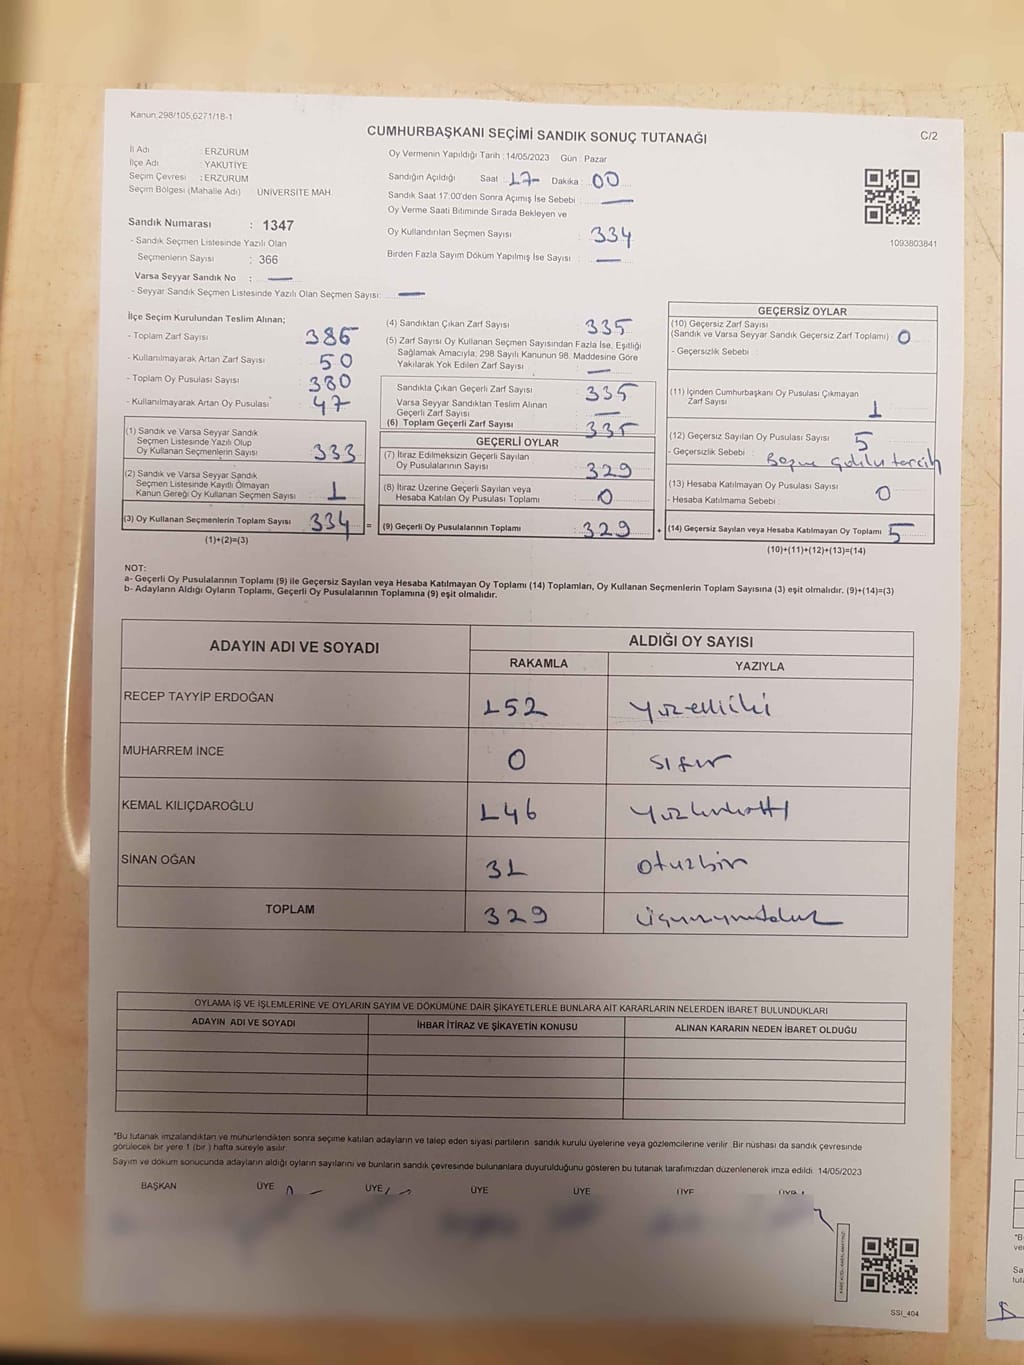 Kanun:298/105,6271/18-1
C/2
CUMHURBAŞKANI SEÇİMİ SANDIK SONUÇ TUTANAĞI
İl Adı : ERZURUM
İlçe Adı YAKUTİYE
Seçim Çevresi : ERZURUM
Seçim Bölgesi (Mahalle Adı) ÜNİVERSİTE MAH.
Sandık Numarası : 1347
- Sandık Seçmen Listesinde Yazılı Olan
Seçmenlerin Sayısı : 366
Varsa Seyyar Sandık No : —
- Seyyar Sandık Seçmen Listesinde Yazılı Olan Seçmen Sayısı: —
Oy Vermenin Yapıldığı Tarih : 14/05/2023 Gün : Pazar
Sandığın Açıldığı Saat : 17- Dakika : 00
Sandık Saat 17:00'den Sonra Açımış İse Sebebi : —
Oy Verme Saati Bitiminde Sırada Bekleyen ve
Oy Kullandırılan Seçmen Sayısı : 334
Birden Fazla Sayım Döküm Yapılmış İse Sayısı : —
1093803841
İlçe Seçim Kurulundan Teslim Alınan;
- Toplam Zarf Sayısı 386
- Kullanılmayarak Artan Zarf Sayısı 50
- Toplam Oy Pusulası Sayısı 380
- Kullanılmayarak Artan Oy Pusulası 47
(1) Sandık ve Varsa Seyyar Sandık
Seçmen Listesinde Yazılı Olup
Oy Kullanan Seçmenlerin Sayısı 333
(2) Sandık ve Varsa Seyyar Sandık
Seçmen Listesinde Kayıtlı Olmayan
Kanun Gereği Oy Kullanan Seçmen Sayısı 1
(3) Oy Kullanan Seçmenlerin Toplam Sayısı 334 =
(1)+(2)=(3)
(4) Sandıktan Çıkan Zarf Sayısı 335
(5) Zarf Sayısı Oy Kullanan Seçmen Sayısından Fazla İse, Eşitliği
Sağlamak Amacıyla; 298 Sayılı Kanunun 98. Maddesine Göre
Yakılarak Yok Edilen Zarf Sayısı : —
Sandıkta Çıkan Geçerli Zarf Sayısı 335
Varsa Seyyar Sandıktan Teslim Alınan
Geçerli Zarf Sayısı : —
(6) Toplam Geçerli Zarf Sayısı : 335
GEÇERLİ OYLAR
(7) İtiraz Edilmeksizin Geçerli Sayılan
Oy Pusulalarının Sayısı : 329
(8) İtiraz Üzerine Geçerli Sayılan veya
Hesaba Katılan Oy Pusulası Toplamı : 0
(9) Geçerli Oy Pusulalarının Toplamı : 329 +
GEÇERSİZ OYLAR
(10) Geçersiz Zarf Sayısı
(Sandık ve Varsa Seyyar Sandık Geçersiz Zarf Toplamı) : 0
- Geçersizlik Sebebi
(11) İçinden Cumhurbaşkanı Oy Pusulası Çıkmayan
Zarf Sayısı 1
(12) Geçersiz Sayılan Oy Pusulası Sayısı 5
- Geçersizlik Sebebi : tercih
(13) Hesaba Katılmayan Oy Pusulası Sayısı 0
- Hesaba Katılmama Sebebi :
(14) Geçersiz Sayılan veya Hesaba Katılmayan Oy Toplamı 5
(10)+(11)+(12)+(13)=(14)
NOT:
a- Geçerli Oy Pusulalarının Toplamı (9) ile Geçersiz Sayılan veya Hesaba Katılmayan Oy Toplamı (14) Toplamları, Oy Kullanan Seçmenlerin Toplam Sayısına (3) eşit olmalıdır. (9)+(14)=(3)
b- Adayların Aldığı Oyların Toplamı, Geçerli Oy Pusulalarının Toplamına (9) eşit olmalıdır.
ADAYIN ADI VE SOYADI
ALDIĞI OY SAYISI
RAKAMLA YAZIYLA
RECEP TAYYİP ERDOĞAN 152 yüzelliiki
MUHARREM İNCE 0 sıfır
KEMAL KILIÇDAROĞLU 146 yüzkırkaltı
SİNAN OĞAN 31 otuzbir
TOPLAM 329
OYLAMA İŞ VE İŞLEMLERİNE VE OYLARIN SAYIM VE DÖKÜMÜNE DAİR ŞİKAYETLERLE BUNLARA AİT KARARLARIN NELERDEN İBARET BULUNDUKLARI
ADAYIN ADI VE SOYADI İHBAR İTİRAZ VE ŞİKAYETİN KONUSU ALINAN KARARIN NEDEN İBARET OLDUĞU
*Bu tutanak imzalandıktan ve mühürlendikten sonra seçime katılan adayların ve talep eden siyasi partilerin sandık kurulu üyelerine veya gözlemcilerine verilir. Bir nüshası da sandık çevresinde
görülecek bir yere 1 (bir ) hafta süreyle asılır.
Sayım ve döküm sonucunda adayların aldığı oyların sayılarını ve bunların sandık çevresinde bulunanlara duyurulduğunu gösteren bu tutanak tarafımızdan düzenlenerek imza edildi. 14/05/2023
BAŞKAN ÜYE ÜYE ÜYE ÜYE ÜYE ÜYE
SSI_404